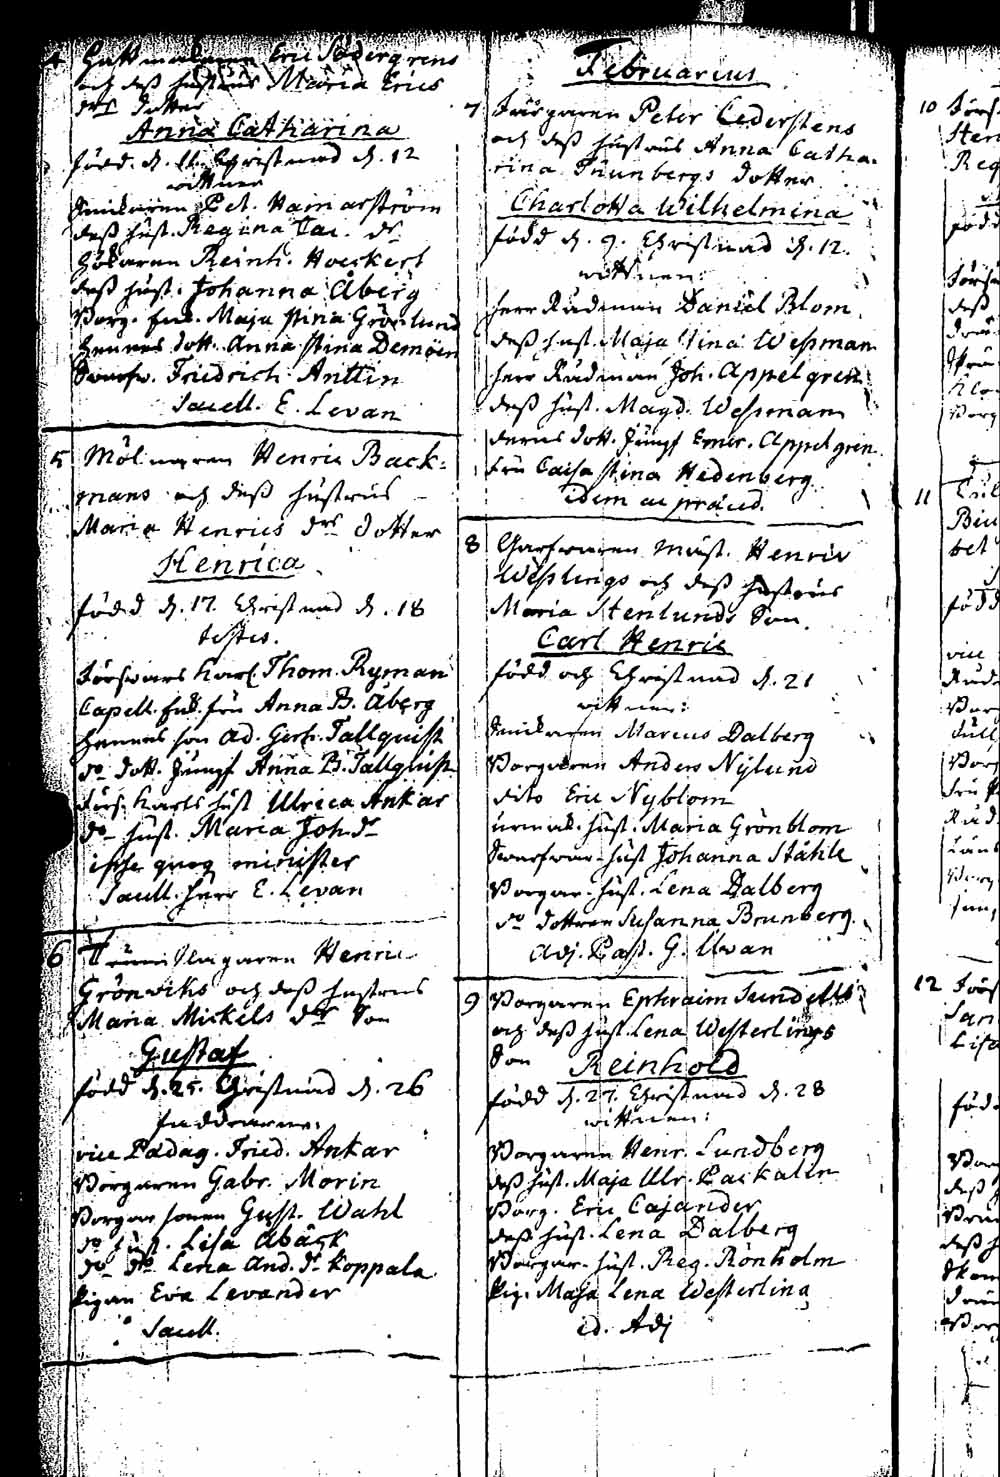 4 Hattmakaren Eric Södergrens
och deß hustrus Maria Erics
drs dotter
Anna Catharina
född d. 11. Christnad d. 12
wittnen
Snickaren Pet. Hamarström
deß hust. Regina Jac. dr
Hökaren Reinh. Hoeckert
deß hust. Johanna Åberg
Borg. Enk. Maja Stina Grönlund
hennes dott. Anna Stina Demoen
Swarfw. Friedrich Anttin
Sacell. E. Levan
5 Mölnaren Henric Back-
mans och deß hustrus
Maria Henrics drs dotter
Henrica
född d. 17. Christnad d. 18
testes.
Försvars Karl. Thom. Ryman
Capell. Enk. fru Anna B. Åberg
hennes son Ad. Gerh. Tallquist
do dott. Jungf Anna B. Tallquist
Förs. Karls hust Ulrica Ankar
do hust. Maria Joh. dr
ipse quoq minister
Sacell. herr E. Levan
6 Henric
Grönwiks och deß hustrus
Maria Mickels drs Son
Gustaf
född d. 25. Christnad d. 26
faddrarne:
vice Pædag. Fried. Ankar
Borgaren Gabr. Morin
Borgar sonen Gust. Wahl
do hust. Lisa Åbäck
do do Lena And. dr Koppala
Pigan Eva Levander
Sacell.
Februarius
7 Färgaren Peter Cederstens
och deß hustrus Anna Catha-
rina Brunbergs dotter
Charlotta Wilhelmina
född d. 9. Christnad d. 12.
wittnen:
herr Rådman Daniel Blom
deß hust. Maja Stina Weßman
herr Rådman Joh. Appelgren
deß hust. Magd. Weßman
deras dott. Jungf Emer. Appelgren
Fru Caisa Stina Hedenberg
idem ac præced.
8 Garfwaren Mäst. Henric
Weßlings och deß hustrus
Maria Stenlunds Son
Carl Henric
född och Christnad d. 21
wittnen:
Snickaren Marcus Dalberg
Borgaren Anders Nylund
dito Eric Nyblom
urmak. hust. Maria Grönblom
Swarfwar. hust Johanna Ståhle
Borgar. hust. Lena Dalberg
do dottren Susanna Brunberg
Adj. Past. G. Levan
9 Borgaren Ephraim Sundells
och deß hust. Lena Westerlings
Son Reinhold
född d. 27. Christnad d. 28
wittnen:
Borgaren Henr. Lundberg
deß hust. Maja Ulr. Packalen
Borg. Eric Cajander
deß hust. Lena Dalberg
Borgar. hust. Reg. Rönholm
Pig. Maja Lena Westerling
id. Adj
10 Förs
Reg
född
11
född
vice
12 Förs
Lisa
född